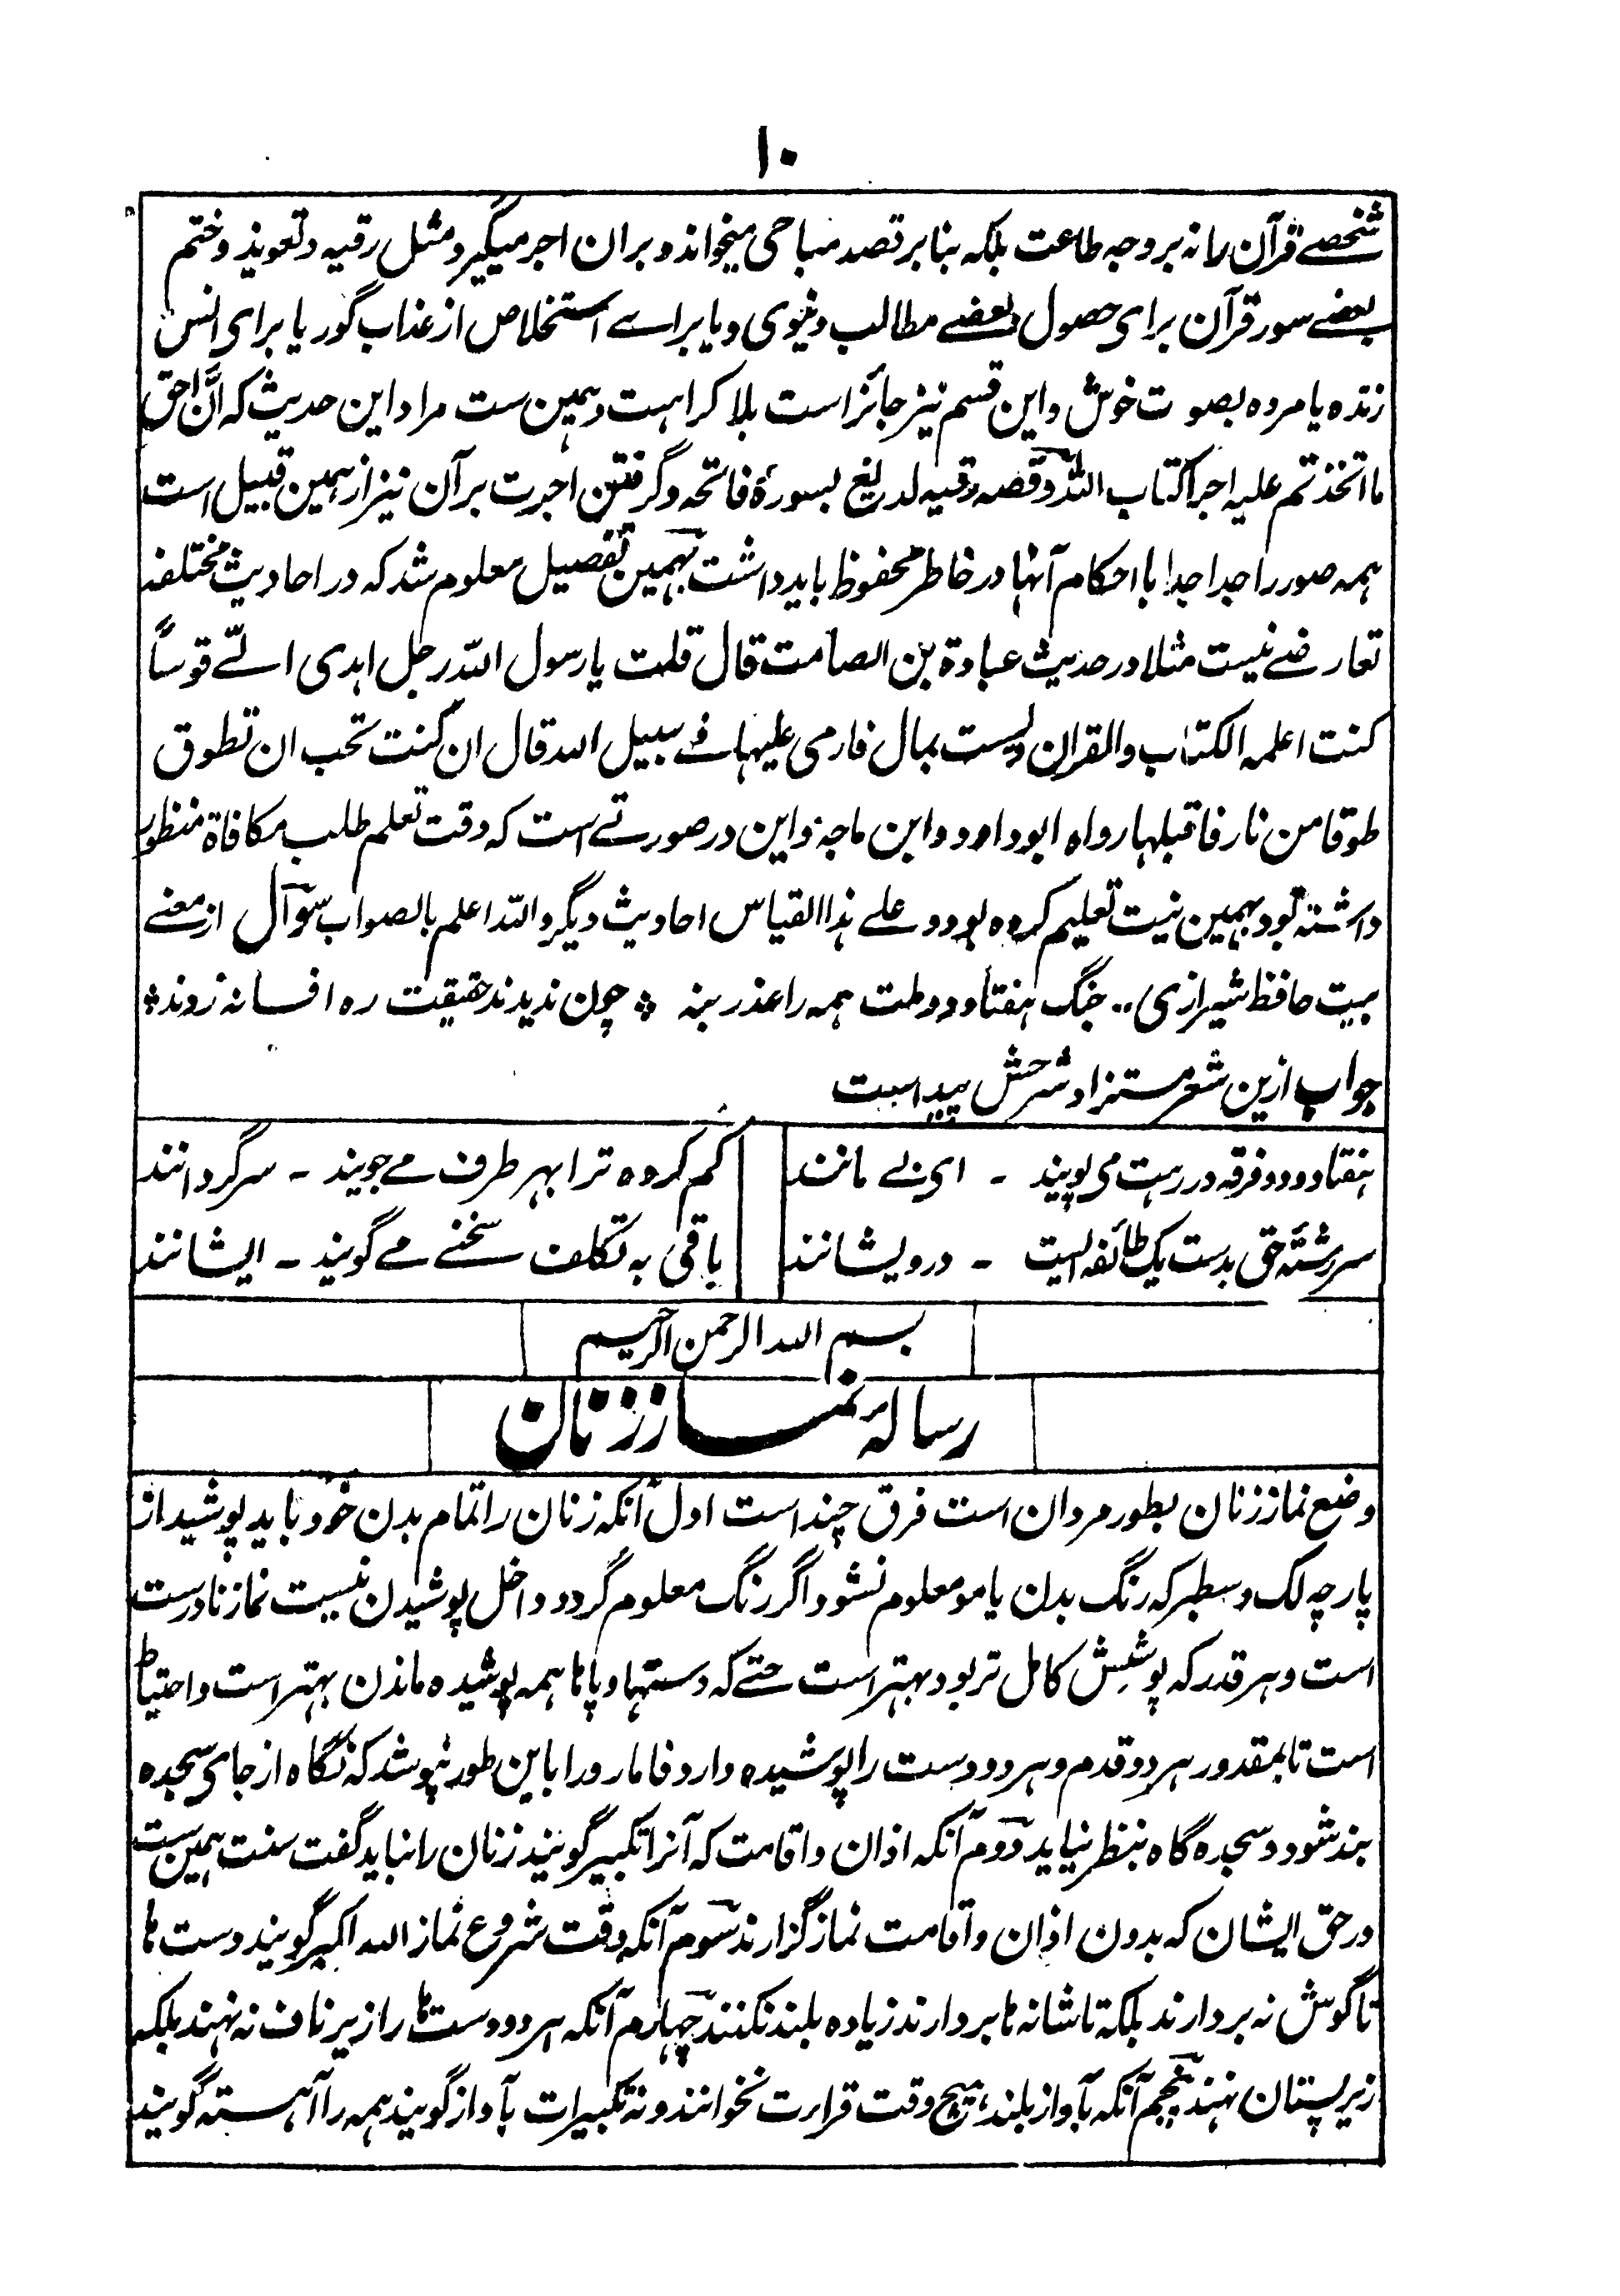 ۱۰
شخصے قرآن را نه بر وجه طاعت بلکه بنا بر قصد مباحی میخواند و بران اجر میگیرد مثل رقیه و تعویذ و ختم
بعضے سور قرآن برای حصول بعضے مطالب دنیوی و یا براے استخلاص از عذاب گور یا برای انس
زنده یا مرده بصوت خوش و این قسم نیز جائز است بلا کراهت و همین ست مراد این حدیث که انّ احق
ما اتخذتم علیه اجرا کتاب الله و قصه رقیه لدیغ بسورۀ فاتحه و گرفتن اجرت برآن نیز از همین قبیل است
همه صور را جدا جدا با احکام آنها در خاطر محفوظ باید داشت بهمین تفصیل معلوم شد که در احادیث مختلفه
تعارضے نیست مثلا در حدیث عبادة بن الصامت قال قلت یا رسول الله رجل اهدی الےّ قوساً
کنت اعلمه الکتاب والقران ولیست بمال فارمی علیها فے سبیل الله قال ان کنت تحب ان تطوق
طوقا من نار فاقبلها رواه ابوداود و ابن ماجه و این در صورتے است که وقت تعلم طلب مکافاة منظور
داشته بود بهمین نیت تعلیم کرده بود و علے هذا القیاس احادیث دیگر والله اعلم بالصواب سوال از معنے
بیت حافظ شیرازی .. جنگ هفتاد و دو ملت همه را عذر بنه ٭ چون ندیدند حقیقت ره افسانه زدند ٭
جواب ازین شعر مستزاد شرحش پیداست
هفتاد و دو فرقه در رهت می پویند ـ ای بے مانند
گم کرده ترا بهر طرف مے جویند ـ سرگردانند
سررشتۀ حق بدست یک طائفه ایست ـ درویشانند
باقی به تکلف سخنے مے گویند ـ ایشانند
بسم الله الرحمن الرحیم
رسالۂ نماز زنان
وضع نماز زنان بطور مردان است فرق چند است اول آنکه زنان را تمام بدن خود باید پوشید از
پارچه لک و سطبر که رنگ بدن یا مو معلوم نشود اگر رنگ معلوم گردد داخل پوشیدن نیست نماز نادرست
است و هر قدر که پوشِش کامل تر بود بهتر است حتے که دستها و پاها همه پوشیده ماندن بهتر است و احتیاط
است تا بمقدور هر دو قدم و هر دو دست را پوشیده دارد فاما رو را باین طور نپوشد که نگاه از جای سجده
بند شود و سجده گاه بنظر نیاید دوم آنکه اذان و اقامت که آنرا تکبیر گویند زنان را نباید گفت سنت همین ست
در حق ایشان که بدون اذان و اقامت نماز گزارند سوم آنکه وقت شروع نماز الله اکبر گویند دست ها
تا گوش نه بردارند بلکه تا شانه ها بردارند زیاده بلند نکنند چهارم آنکه هر دو دست ها را زیر ناف نه نهند بلکه
زیر پستان نهند پنجم آنکه بآواز بلند هیچ وقت قراءت نخوانند و نه تکبیرات بآواز گویند همه را آهسته گویند